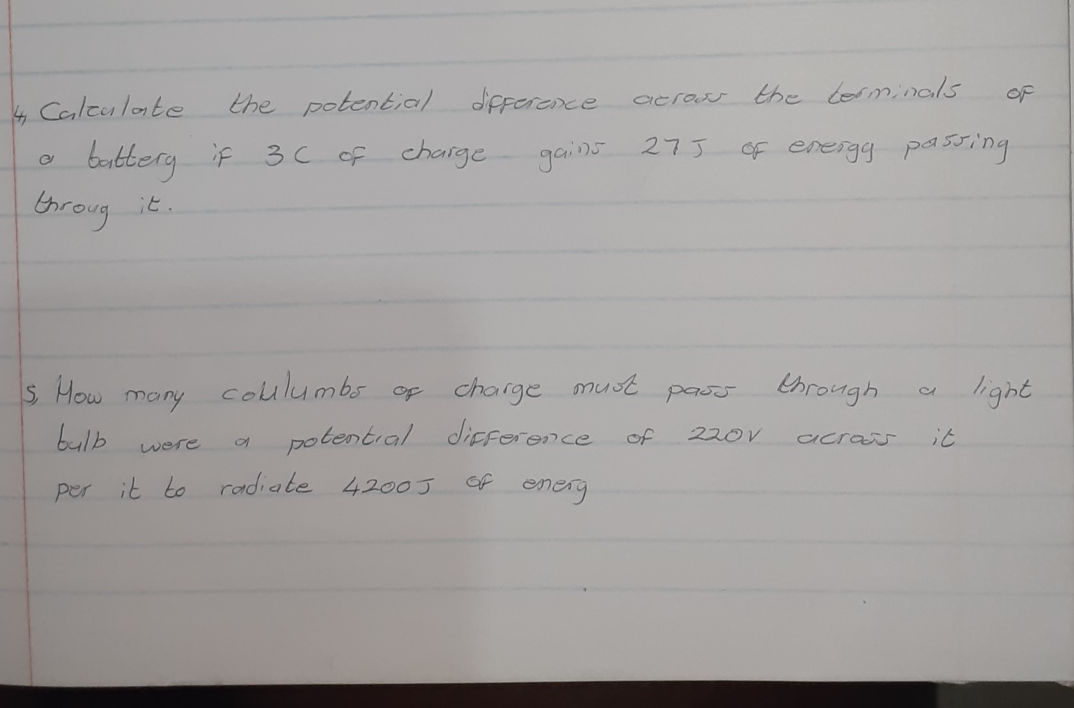 4, Calculate the potential difference across the terminals of
a battery if 3C of charge gains 27J of energy passing
throug it.
5, How many coulumbs of charge must pass through a light
bulb were a potential difference of 220V across it
per it to radiate 4200J of energ